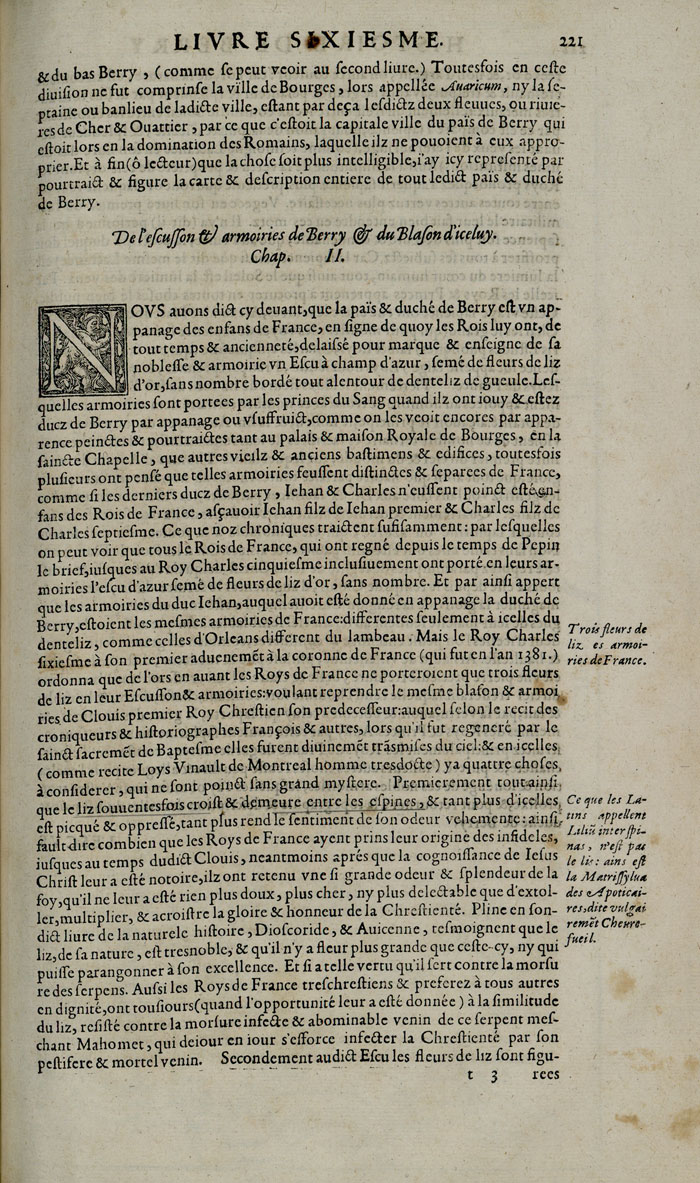 LIVRE SIXIESME. 221
& du bas Berry, (comme ſe peut veoir au ſecond liure.) Toutesfois en ceſte
diuiſion ne fut comprinſe la ville de Bourges, lors appellée Auaricum, ny la ſe-
ptaine ou banlieu de ladicte ville, eſtant par deça leſdictz deux fleuues, ou riuie-
res de Cher & Ouattier, par ce que c'eſtoit la capitale ville du païs de Berry qui
eſtoit lors en la domination des Romains, laquelle ilz ne pouoient à eux appro-
prier. Et à fin (ô lecteur) que la choſe ſoit plus intelligible, i'ay icy repreſenté par
pourtraict & figure la carte & deſcription entiere de tout ledict païs & duché
de Berry.
De l'eſcuſſon & armoiries de Berry & du Blaſon d'iceluy.
Chap. II.
NOVS auons dict cy deuant, que la païs & duché de Berry eſt vn ap-
panage des enfans de France, en ſigne de quoy les Rois luy ont, de
tout temps & ancienneté, delaiſſé pour marque & enſeigne de ſa
nobleſſe & armoirie vn Eſcu à champ d'azur, ſemé de fleurs de liz
d'or, ſans nombre bordé tout alentour de denteliz de gueule. Leſ-
quelles armoiries ſont portees par les princes du Sang quand ilz ont iouy & eſtez
ducz de Berry par appanage ou vſuffruict, comme on les veoit encores par appa-
rence peinctes & pourtraictes tant au palais & maiſon Royale de Bourges, en la
ſaincte Chapelle, que autres vieilz & anciens baſtimens & edifices, toutesfois
pluſieurs ont penſé que telles armoiries feuſſent diſtinctes & ſeparees de France,
comme ſi les derniers ducz de Berry, Iehan & Charles n'euſſent poinct eſté en-
fans des Rois de France, aſçauoir Iehan filz de Iehan premier & Charles filz de
Charles ſeptieſme. Ce que noz chroniques traictent ſufiſamment: par leſquelles
on peut voir que tous le Rois de France, qui ont regné depuis le temps de Pepin
le brief, iuſques au Roy Charles cinquieſme incluſiuement ont porté en leurs ar-
moiries l'eſcu d'azur ſemé de fleurs de liz d'or, ſans nombre. Et par ainſi appert
que les armoiries du duc Iehan, auquel auoit eſté donné en appanage la duché de
Berry, eſtoient les meſmes armoiries de France: differentes ſeulement à icelles du
denteliz, comme celles d'Orleans different du lambeau. Mais le Roy Charles
ſixieſme à ſon premier aduenemēt à la coronne de France (qui fut en l'an 1381.)
ordonna que de l'ors en auant les Roys de France ne porteroient que trois fleurs
de liz en leur Eſcuſſon & armoiries: voulant reprendre le meſme blaſon & armoi
ries de Clouis premier Roy Chreſtien ſon predeceſſeur: auquel ſelon le recit des
croniqueurs & hiſtoriographes François & autres, lors qu'il fut regeneré par le
ſainct ſacremēt de Bapteſme elles furent diuinemēt trāſmiſes du ciel: & en icelles
(comme recite Loys Vinault de Montreal homme treſdocte) ya quattre choſes
à conſiderer, qui ne ſont poinct ſans grand myſtere. Premierement tout ainſi
que le liz ſouuentesfois croiſt & demeure entre les eſpines, & tant plus d'icelles
eſt picqué & oppreſſé, tant plus rend le ſentiment de ſon odeur vehemente: ainſi
fault dire combien que les Roys de France ayent prins leur origine des infideles,
iuſques au temps dudict Clouis, neantmoins aprés que la cognoiſſance de Ieſus
Chriſt leur a eſté notoire, ilz ont retenu vne ſi grande odeur & ſplendeur de la
foy, qu'il ne leur a eſté rien plus doux, plus cher, ny plus delectable que d'extol-
ler, multiplier, & acroiſtre la gloire & honneur de la Chreſtienté. Pline en ſon-
dict liure de la naturele hiſtoire, Dioſcoride, & Auicenne, teſmoignent que le
liz, de ſa nature, eſt treſnoble, & qu'il n'y a fleur plus grande que ceſte-cy, ny qui
puiſſe parangonner à ſon excellence. Et ſi a telle vertu qu'il ſert contre la morſu
re des ſerpens. Auſſi les Roys de France treſchreſtiens & preferez à tous autres
en dignité, ont touſiours (quand l'opportunité leur a eſté donnée) à la ſimilitude
du liz, reſiſté contre la morſure infecte & abominable venin de ce ſerpent meſ-
chant Mahomet, qui de iour en iour s'efforce infecter la Chreſtienté par ſon
peſtifere & mortel venin. Secondement audict Eſcu les fleurs de liz ſont figu-
t 3 rees
Trois fleurs de
liz es armoi-
ries de France.
Ce que les La-
tins appellent
Liliū inter ſpi-
nas, n'eſt pas
le lis: ains eſt
la Matriſſylua
des Apoticai-
res, dite vulgai
remēt Cheure-
fueil.